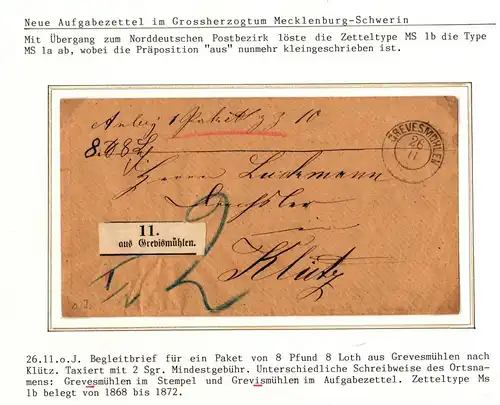 Neue Aufgabezettel im Grossherzogtum Mecklenburg-Schwerin
Mit Übergang zum Norddeutschen Postbezirk löste die Zetteltype MS 1b die Type
MS 1a ab, wobei die Präposition "aus" nunmehr kleingeschrieben ist.
GREVESMÜHLEN
26
11
Herrn Lüdemann
in
Klütz
2
11.
aus Grevismühlen.
26.11.o.J. Begleitbrief für ein Paket von 8 Pfund 8 Loth aus Grevesmühlen nach
Klütz. Taxiert mit 2 Sgr. Mindestgebühr. Unterschiedliche Schreibweise des Ortsna-
mens: Grevesmühlem im Stempel und Grevismühlem im Aufgabezettel. Zetteltype Ms
1b belegt von 1868 bis 1872.